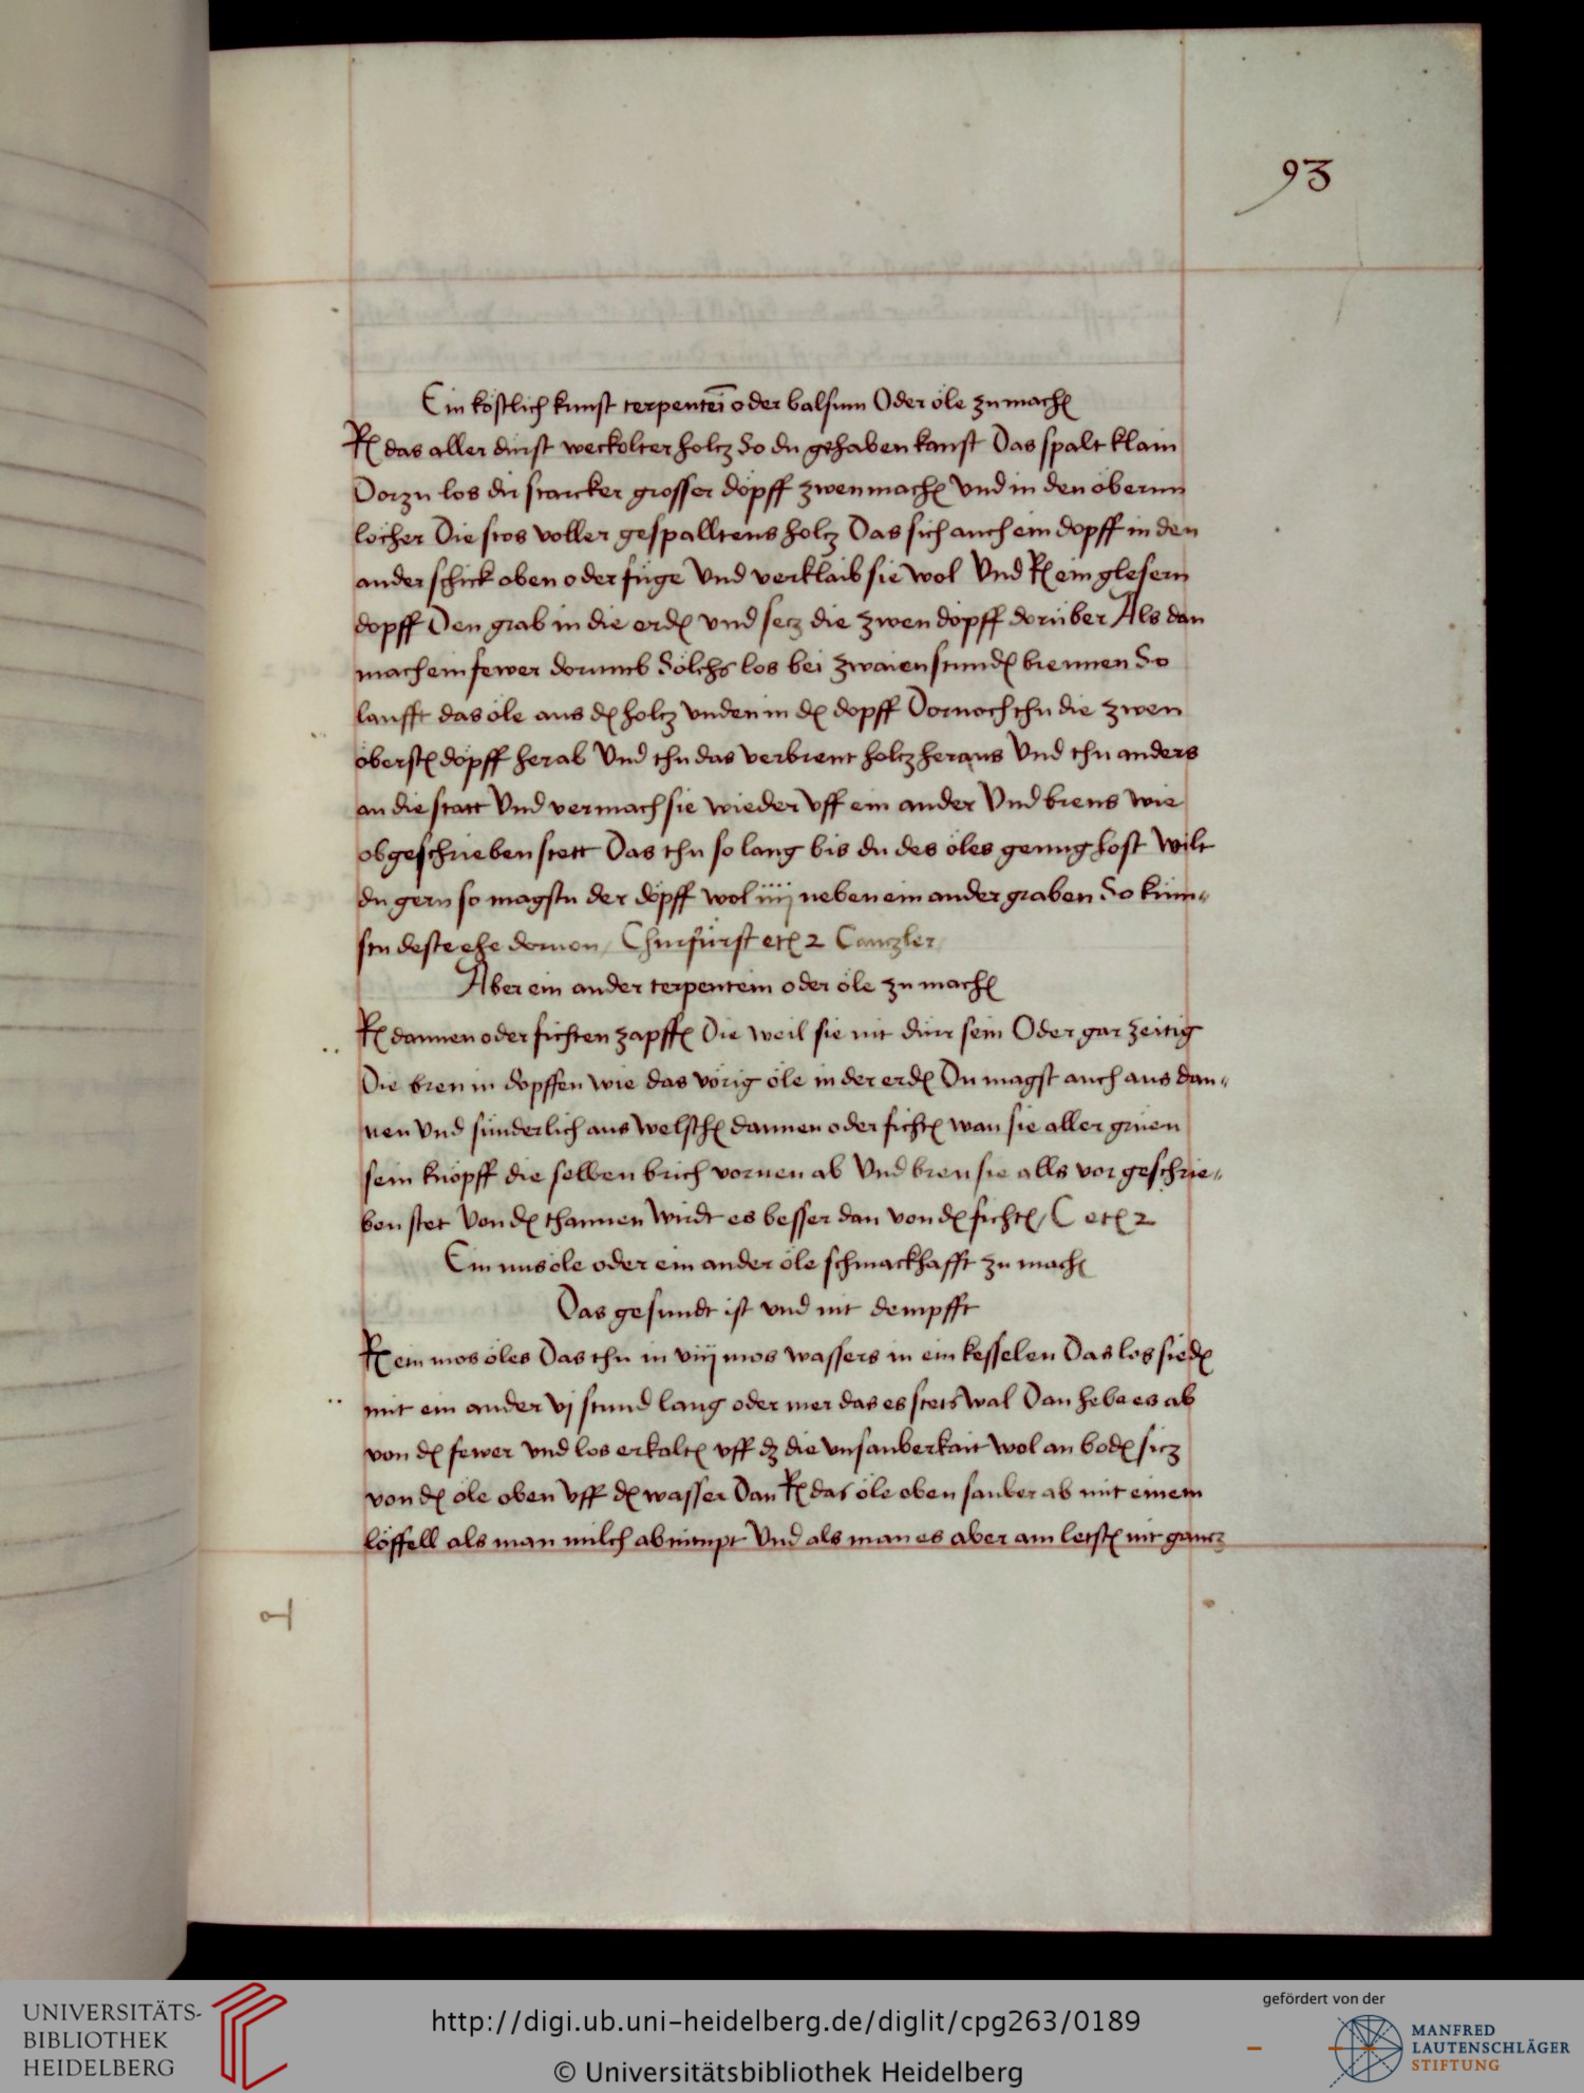 93
Ein köstlich kunst terpentei̅ oder balsum Oder öle zu mach&#xA75B;
Rx das aller dürst weckolter holcz So du gehaben kanst Das spalt klain
Dorzu los dir starcker grosser döpff zwen mach&#xA75B; Vnd in den öbernn
löcher Die stos voller gespalltens holcz Das sich auch ein dopff in den
ander schick oben oder füge Vnd verklaib sie wol Vnd Rx ein glesern
dopff Den grab in die erd&#xA75B; vnd secz die zwen döpff dorüber Als dan
mach ein fewer dorumb Sölchs los bei zwaien stund&#xA75B; brennen So
laufft das öle aus d&#xA75B; holcz vnden in d&#xA75B; dopff Dornoch thu die zwen
öberst&#xA75B; döpff herab Vnd thu das verbrent holcz heraus Vnd thu anders
an die statt Vnd vermach sie wieder vff ein ander Vnd brens wie
obgeschrieben stett Das thu so lang bis du des öles genug host Wilt
du gern so magstu der döpff wol iiij neben ein ander graben So kum-
stu deste ehe dornon / Churfürst etc 2 Canczler
Aber ein ander terpentein oder öle zu mach&#xA75B;
Rx dannen oder fichten zapff&#xA75B; Die weil sie nit dürr sein Oder gar zeitig
Die bren in döpffen wie das vörig öle in der erd&#xA75B; Du magst auch aus dan-
nen Vnd sünderlich aus welsch&#xA75B; dannen oder ficht&#xA75B; wan sie aller grüen
sein knöpff die selben brich vornen ab Vnd bren sie alls vor geschrie-
ben stet Von d&#xA75B; thannen wirdt es besser dan von d&#xA75B; ficht&#xA75B; / C etc 2
Ein nusöle oder ein ander öle schmackhafft zu mach&#xA75B;
Das gesundt ist vnd nit dempfft
Rx ein mos öles Das thu in viij mos wassers in ein kesselen Das los sied&#xA75B;
mit ein ander vj stund lang oder mer das es stets wal Dan hebe es ab
von d&#xA75B; fewer vnd los erkalt&#xA75B; vff dz die vnsauberkait wol an bod&#xA75B; sicz
von d&#xA75B; öle oben vff d&#xA75B; wasser Dan Rx das öle oben sauber ab mit einem
löffell als man milch abnimpt Vnd als man es aber am letst&#xA75B; nit gancz
UNIVERSITÄTS-
BIBLIOTHEK
HEIDELBERG
http://digi.ub.uni-heidelberg.de/diglit/cpg263/0189
© Universitätsbibliothek Heidelberg
gefördert von der
MANFRED
LAUTENSCHLÄGER
STIFTUNG